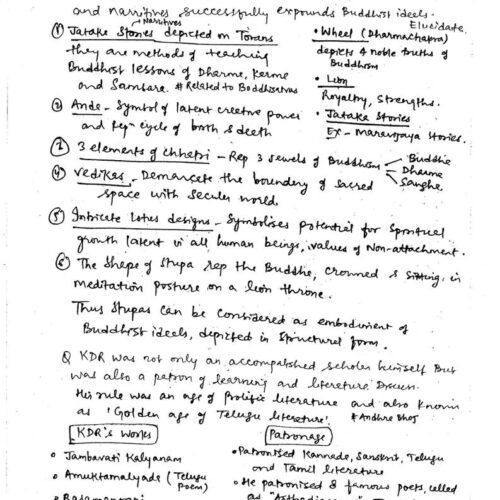 and narritives successfully expounds Buddhist ideels.
Elucidate.
① Jataka Stories depicted on Torans
Narritives
they are methods of teaching
Buddhist lessons of Dharme, kerme
and Samsare. # Related to Boddhisatvas
• Wheel (Dharmachakra)
depicts 4 noble truths of
Buddhism
• Lion
Royalty, Strengths.
• Jataka Stories
Ex - Maravijaya Stories.
② Ande - Symbol of latent creative power
and Rep cycle of borth & deeth
③ 3 elements of chhetri - Rep 3 Jewels of Buddhism
Buddhe
Dherme
Sanghe
④ Vedikas - Demarcate the boundery of sacred
space with seculer world.
⑤ Intricate lotus designs - Symbolises potential for Spiritual
growth latent in all human beings, values of Non-attachment.
⑥ The shape of Stupa rep the Buddhe, crowned & sitting in
meditation posture on a lion throne.
Thus Stupas can be considered as embodiment of
Buddhist ideels, depicted in Structural form.
Q KDR was not only an accomplished scholar himself But
was also a patron of learning and literature. Discuss.
His rule was an age of prolific literature and also known
as 'Golden age of Telugu literature'. # Andhre Bhoj
KDR's Works
• Jambavati Kalyanam
• Amuktamalyade (Telugu
Poem)
Patronage
• Patronised Kannade, Sanskrit, Telugu
and Tamil literature
• He patronised 8 famous poets, called